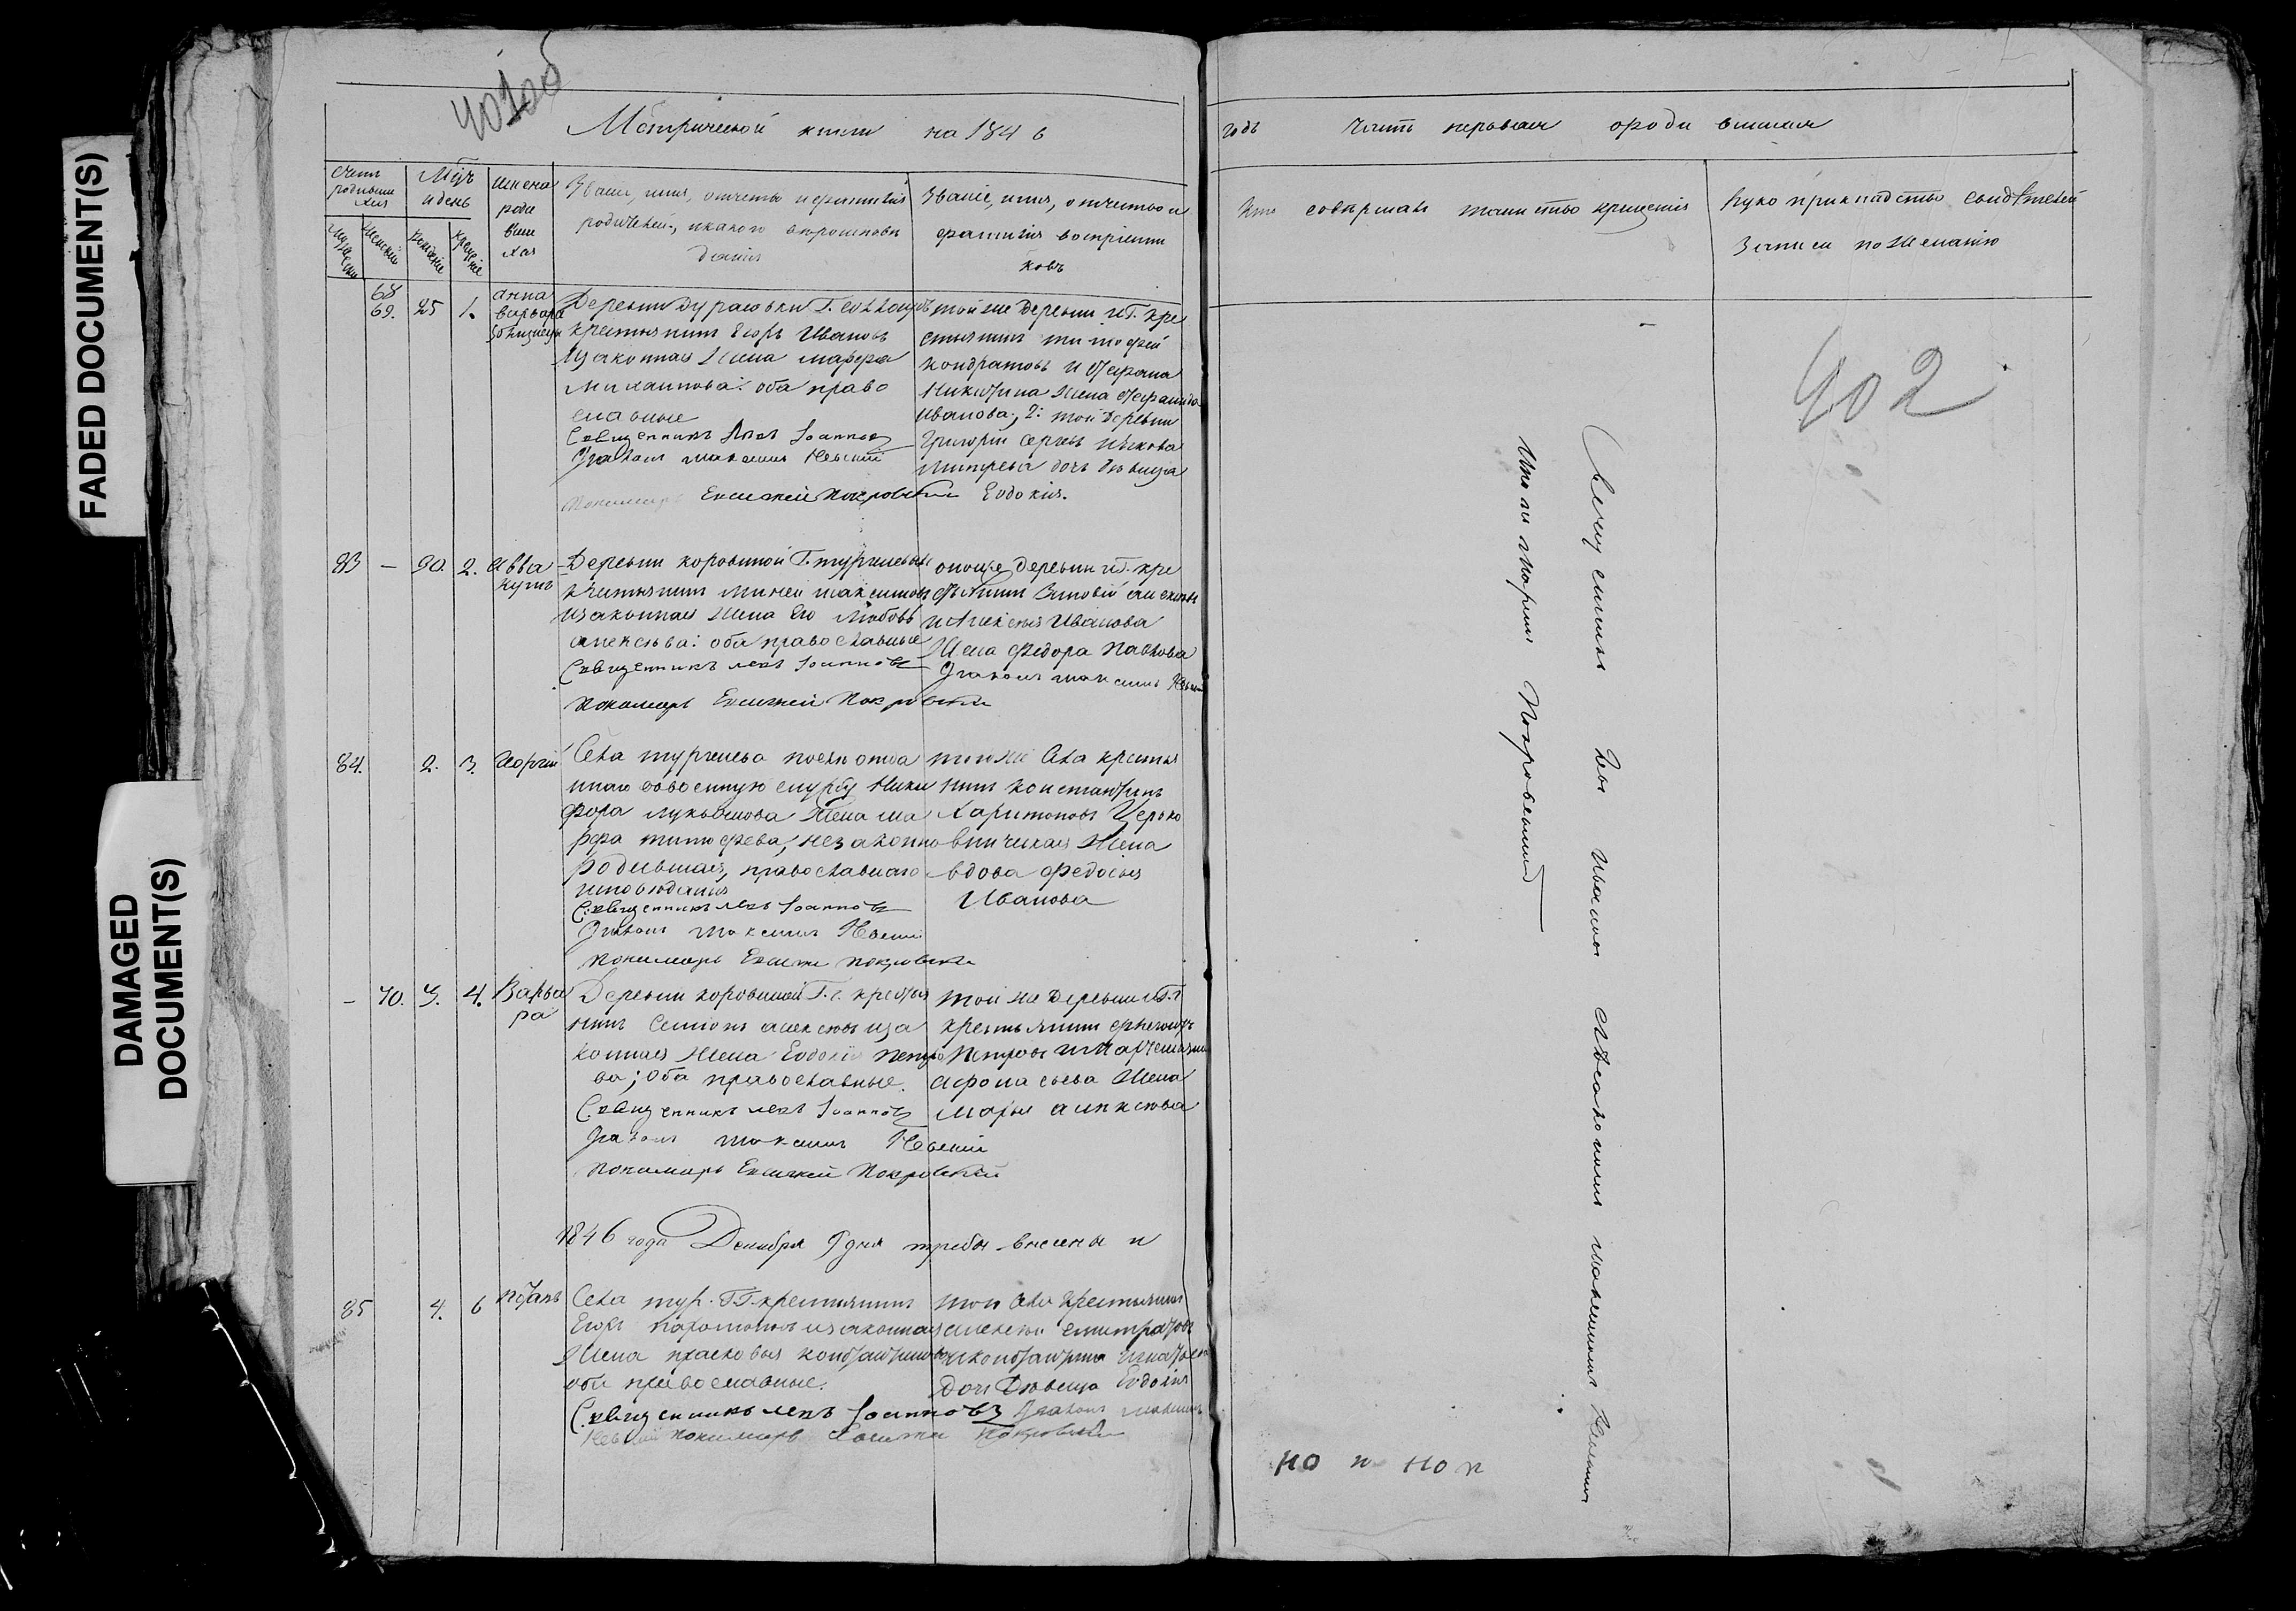 FADED DOCUMENT(S)
DAMAGED
DOCUMENT(S)
401об
Метрической книги на 1846
годъ Часть первая о родившихся
Счетъ родившихся
Мужеска
Женска
Мѣц. и день
Рожденіе
Крещеніе
Имена родившихся
Званіе, имя, отчество и фамилія
родителей, и какого вѣроисповѣ
данія
Званіе, имя, отчество и
фамилія воспріемни
ковъ
Кто совершалъ таинство крещенія
Рукоприкладство свидѣтелей
записи по желанію
68
69. 25 1.
Анна
Варвара
близнецы
Деревни Дурасовки Г.
крестьянинъ Егоръ Ивановъ
и законная жена Марфа
Михаилова: оба право
славные
Священникъ Левъ Іоанновъ
Діаконъ Максимъ Невскій
Пономарь Евгеній Покровскій
той же деревни и Г. кре
стьянинъ Тимофей
Кондратовъ и Стефана
Никитина жена Стефанида
Иванова; 2: той деревни
Григорій Сергѣевъ и Якова
Дмитрева дочь дѣвица
Евдокія.
402
83 — 30. 2. Авва
кумъ
Деревни Коровиной Г. Тургеневыхъ
крестьянинъ Миней Максимовъ
и законная жена его Любовь
Алексѣева: оба православные
Священникъ Левъ Іоанновъ
Пономарь Евгеній Покровскій
оной же деревни и Г. кре
стьянинъ Зиновій Алексѣевъ
и Аксинья Иванова
жена Федора Павлова
Діаконъ Максимъ Невскій
84. 2. 3. Георгій
Села Тургенева послѣ отда
ннаго въ военную службу Ники
фора Лукьянова жена Ма
рфа Тимофеева, незаконно
родившая, православнаго
исповѣданія
Священникъ Левъ Іоанновъ
Діаконъ Максимъ Невскій
Пономарь Евгеній Покровскій
того же села крестья
нинъ Константинъ
Харитоновъ Церко
вническая жена
вдова Федосья
Иванова
— 70. 3. 4. Варва
ра
Деревни Коровиной Г. г. крестья
нинъ Семіонъ Алексѣевъ и за
конная жена Евдокія Петро
ва; оба православные.
Священникъ Левъ Іоанновъ
Діаконъ Максимъ Невскій
Пономарь Евгеній Покровскій
той же деревни и Г. г
крестьянинъ
Петровъ и
Афонасьева жена
Марья Алексѣева
1846 года Декабря 9 дня требы внесены и
85 4. 6
Села Тур. Г. Г. крестьянинъ
Егоръ и законная
жена Прасковья Константинова
оба православные.
Священникъ Левъ Іоанновъ Діаконъ Максимъ
Невскій Пономарь Евгеній Покровскій
того села крестьянинъ
Алексѣй
и Константина Игнатьева
дочь дѣвица Евдокія
Священникъ Левъ Ивановъ съ Діакономъ Максимомъ Невскимъ
и Пономаремъ Покровскимъ